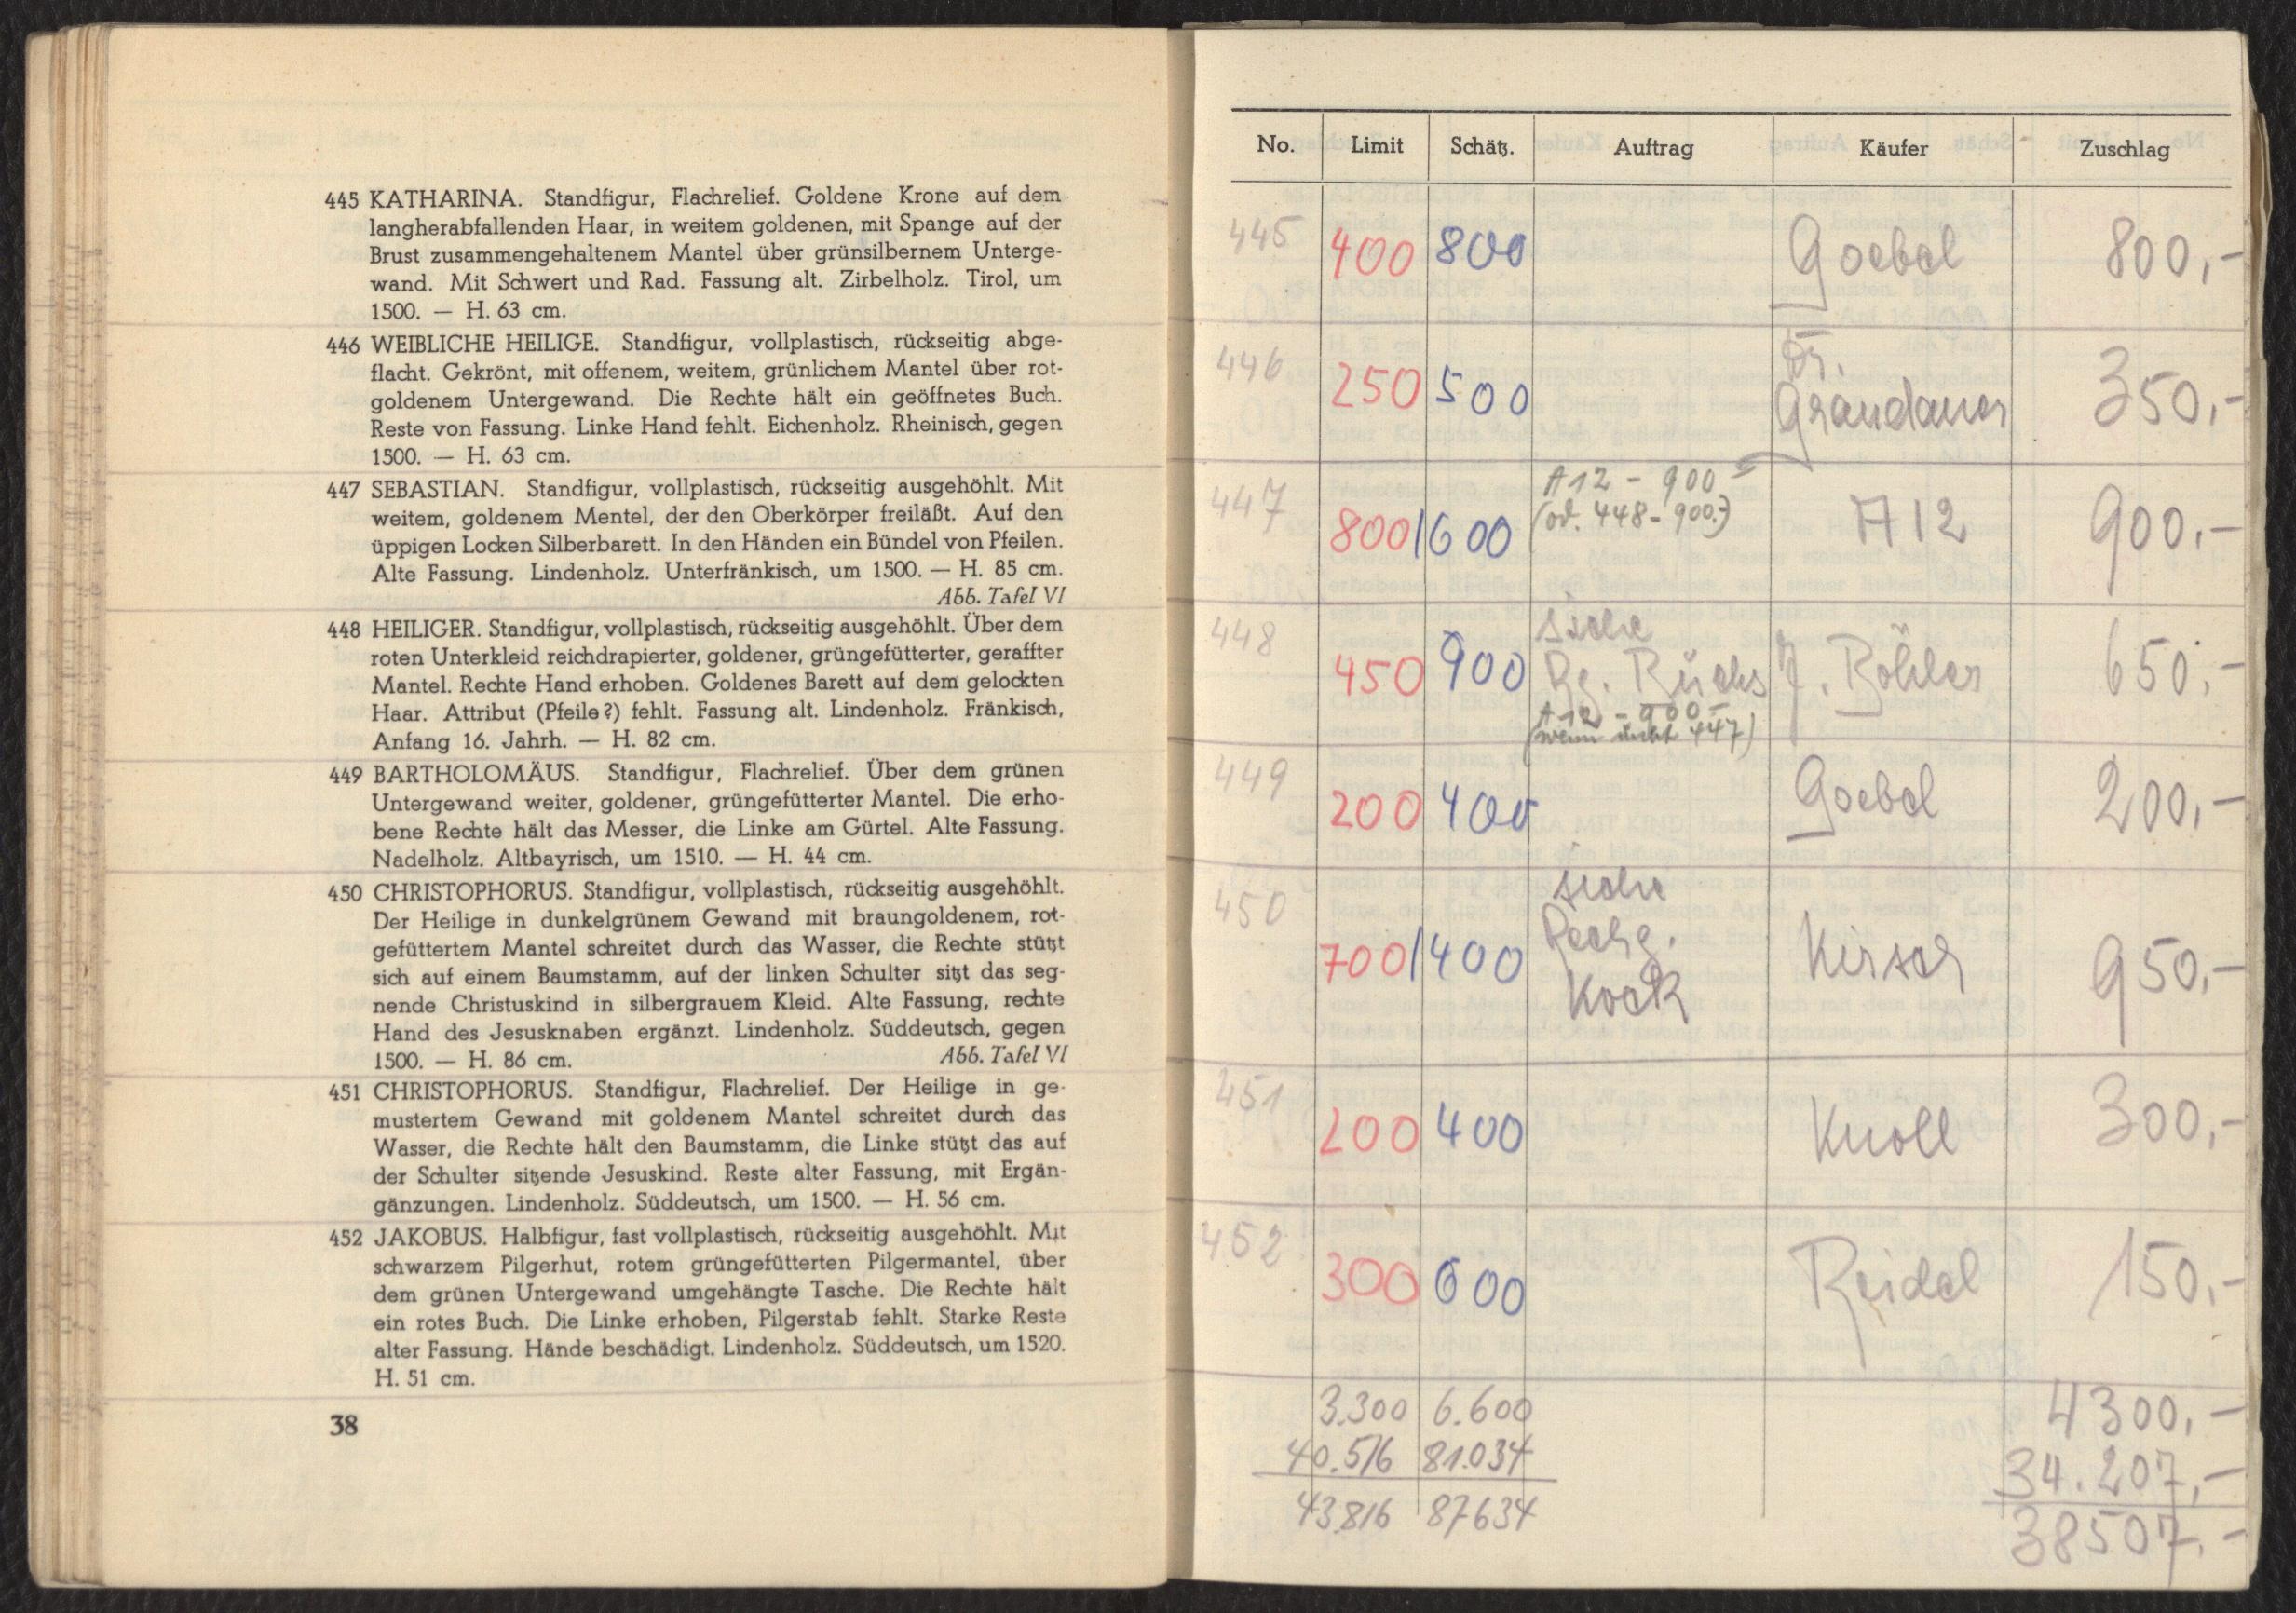 445 KATHARINA. Standfigur, Flachrelief. Goldene Krone auf dem
langherabfallenden Haar, in weitem goldenen, mit Spange auf der
Brust zusammengehaltenem Mantel über grünsilbernem Unterge-
wand. Mit Schwert und Rad. Fassung alt. Zirbelholz. Tirol, um
1500. — H. 63 cm.
446 WEIBLICHE HEILIGE. Standfigur, vollplastisch, rückseitig abge-
flacht. Gekrönt, mit offenem, weitem, grünlichem Mantel über rot-
goldenem Untergewand. Die Rechte hält ein geöffnetes Buch.
Reste von Fassung. Linke Hand fehlt. Eichenholz. Rheinisch, gegen
1500. — H. 63 cm.
447 SEBASTIAN. Standfigur, vollplastisch, rückseitig ausgehöhlt. Mit
weitem, goldenem Mentel, der den Oberkörper freiläßt. Auf den
üppigen Locken Silberbarett. In den Händen ein Bündel von Pfeilen.
Alte Fassung. Lindenholz. Unterfränkisch, um 1500. — H. 85 cm.
Abb. Tafel VI
448 HEILIGER. Standfigur, vollplastisch, rückseitig ausgehöhlt. Über dem
roten Unterkleid reichdrapierter, goldener, grüngefütterter, geraffter
Mantel. Rechte Hand erhoben. Goldenes Barett auf dem gelockten
Haar. Attribut (Pfeile?) fehlt. Fassung alt. Lindenholz. Fränkisch,
Anfang 16. Jahrh. — H. 82 cm.
449 BARTHOLOMÄUS. Standfigur, Flachrelief. Über dem grünen
Untergewand weiter, goldener, grüngefütterter Mantel. Die erho-
bene Rechte hält das Messer, die Linke am Gürtel. Alte Fassung.
Nadelholz. Altbayrisch, um 1510. — H. 44 cm.
450 CHRISTOPHORUS. Standfigur, vollplastisch, rückseitig ausgehöhlt.
Der Heilige in dunkelgrünem Gewand mit braungoldenem, rot-
gefüttertem Mantel schreitet durch das Wasser, die Rechte stützt
sich auf einem Baumstamm, auf der linken Schulter sitzt das seg-
nende Christuskind in silbergrauem Kleid. Alte Fassung, rechte
Hand des Jesusknaben ergänzt. Lindenholz. Süddeutsch, gegen
1500. — H. 86 cm. Abb. Tafel VI
451 CHRISTOPHORUS. Standfigur, Flachrelief. Der Heilige in ge-
mustertem Gewand mit goldenem Mantel schreitet durch das
Wasser, die Rechte hält den Baumstamm, die Linke stützt das auf
der Schulter sitzende Jesuskind. Reste alter Fassung, mit Ergän-
gänzungen. Lindenholz. Süddeutsch, um 1500. — H. 56 cm.
452 JAKOBUS. Halbfigur, fast vollplastisch, rückseitig ausgehöhlt. Mit
schwarzem Pilgerhut, rotem grüngefütterten Pilgermantel, über
dem grünen Untergewand umgehängte Tasche. Die Rechte hält
ein rotes Buch. Die Linke erhoben, Pilgerstab fehlt. Starke Reste
alter Fassung. Hände beschädigt. Lindenholz. Süddeutsch, um 1520.
H. 51 cm.
38
No. Limit Schätz. Auftrag Käufer Zuschlag
445 400 800 Goebel 800,-
446 250 500 Dr. Grandauer 350,-
447 800 1600 A12 - 900 - A12 900,-
(od. 448 - 900.-)
448 450 900 siehe J. Böhler 650,-
Rg.
A12 - 900 -
(wenn nicht 447)
449 200 400 Goebel 200,-
450 700 1400 siehe Kirsch 950,-
Rechg.
Kock
451 200 400 Knoll 300,-
452 300 600 Reidel 150,-
3.300 6.600 4300,-
40.516 81.034 34.207,-
43816 87634 38507,-